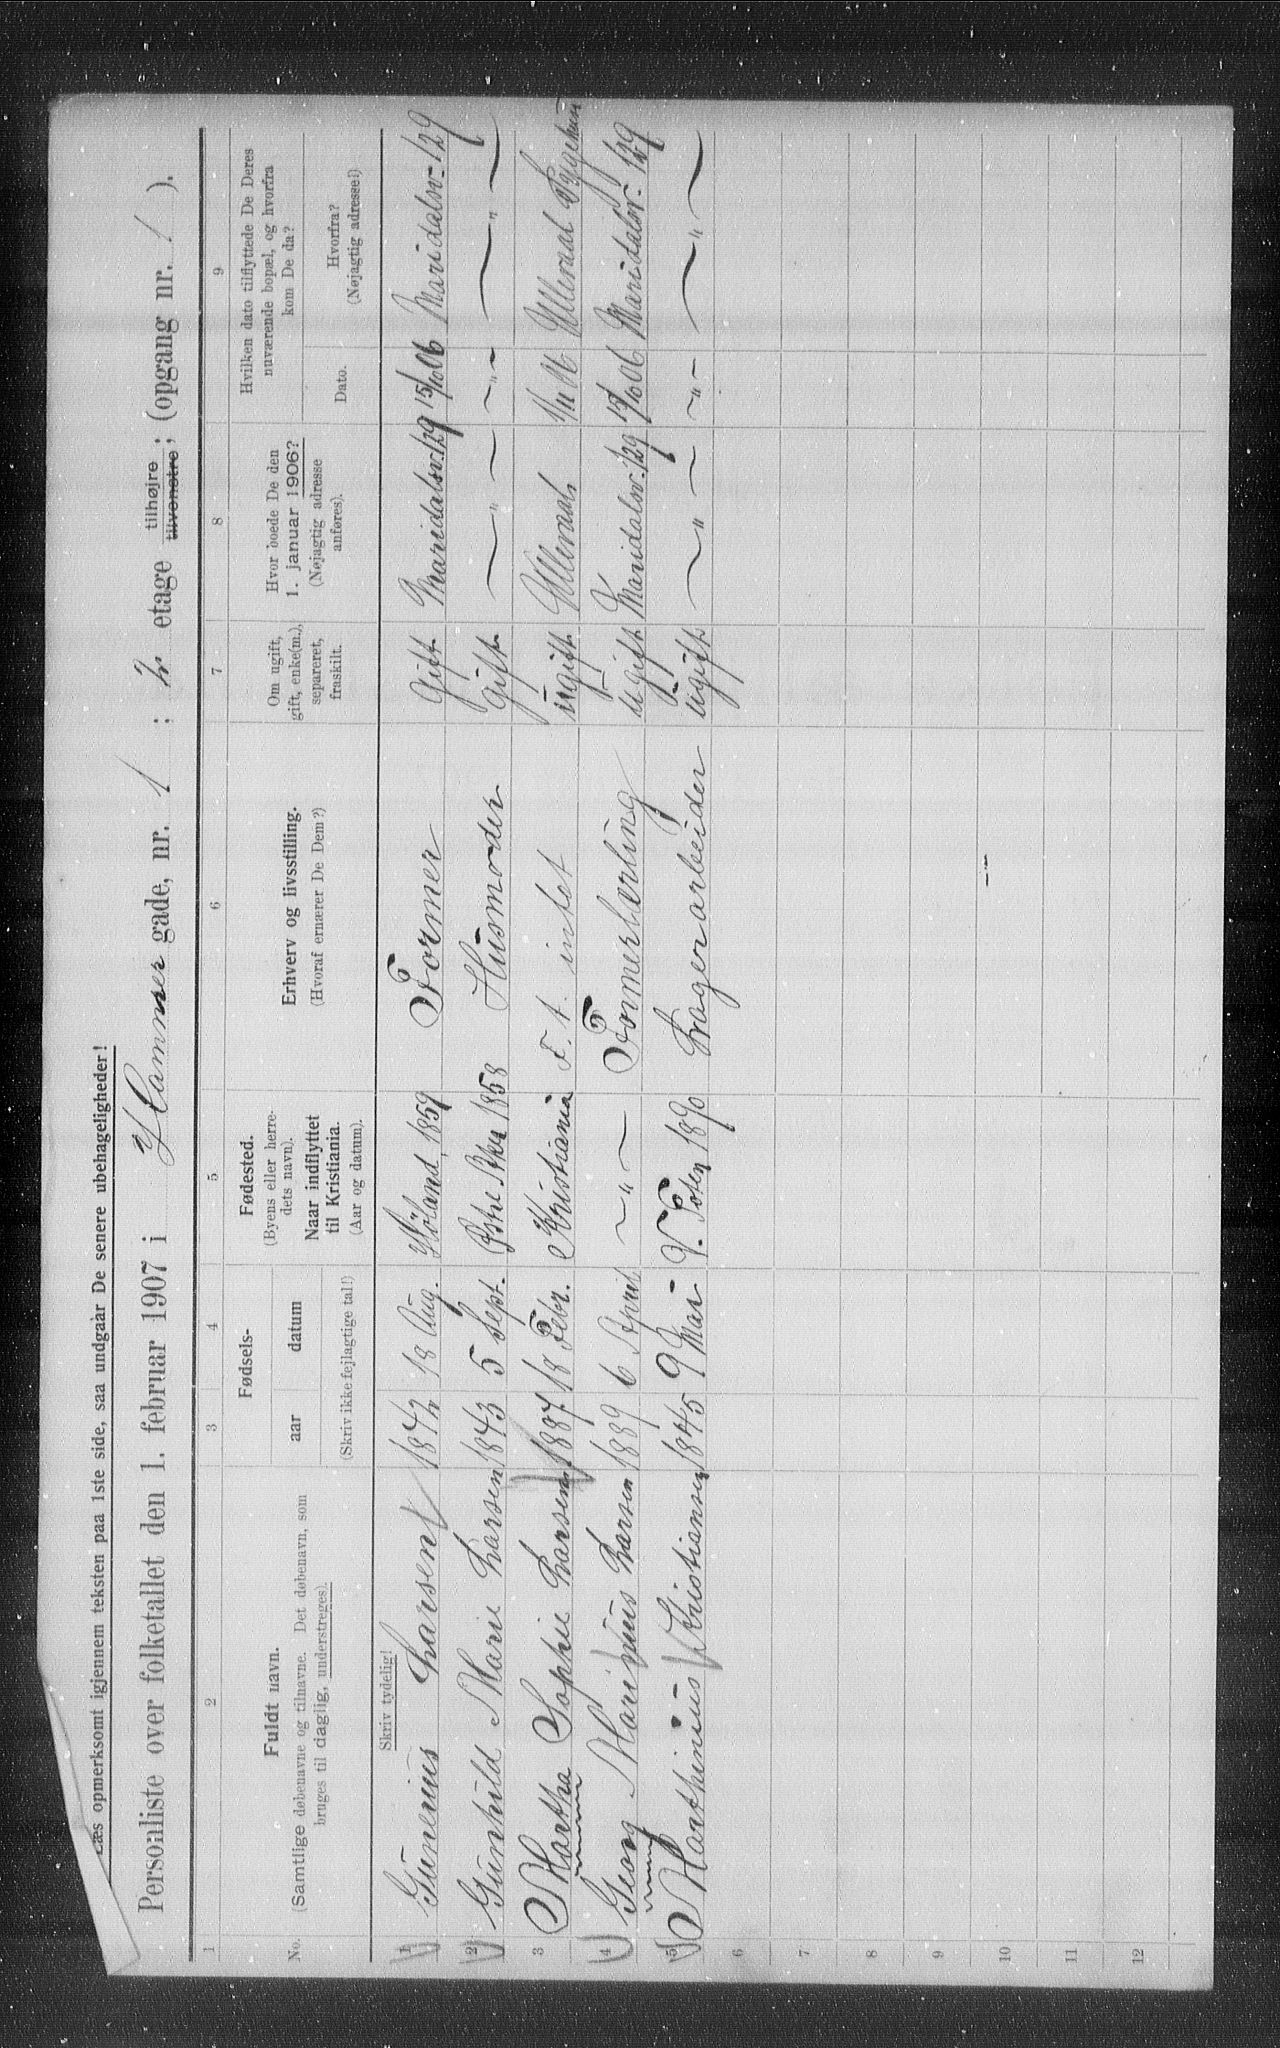 Læs opmerksomt igjennem teksten paa 1ste side, saa undgaar De senere ubehageligheder!
Personaliste over folketallet den 1. februar 1907 i Hammer gade, nr. 1 ; 2 etage tilhøjre tilvenstre; (opgang nr. 1 ).
1 2 3 4 5 6 7 8 9
No.
Fuldt navn.
(Samtlige døbenavne og tilnavne. Det døbenavn, som
bruges til daglig, understreges).
Fødsels-
aar datum
(Skriv ikke fejlagtige tal!)
Fødested.
(Byens eller herre-
dets navn).
Naar indflyttet
til Kristiania.
(Aar og datum).
Erhverv og livsstilling.
(Hvoraf ernærer De Dem?)
Om ugift,
gift, enke(m.),
separeret,
fraskilt.
Hvor boede De den
1. januar 1906?
(Nøjagtig adresse
anføres).
Hvilken dato tilflyttede De Deres
nuværende bopæl, og hvorfra
kom De da?
Dato.
Hvorfra?
(Nøjagtig adresse!)
Skriv tydelig!
1 Gunerius Larsen 1842 18 Aug. Höland, 1859 Former Gift Maridalsv. 129 15/10 06 Maridalsv. 129
2 Gunhild Marie Larsen 1843 5 Sept. 1858 Husmoder Gift — " — — " — — " —
3 Martha Sophie Larsen 1887 18 Febr. Kristiania F. t. intet ugift Ullevaal 1/11 06 Ullevaal Sygehus
4 Georg Marinius Larsen 1889 6 April — " — Formerlærling ugift Maridalsv. 129 15/10 06 Maridalsv. 129
5 Marthinius Kristiansen 1845 9 Mai V. Toten 1890 Lagerarbeider ugift — " — — " — — " —
6
7
8
9
10
11
12